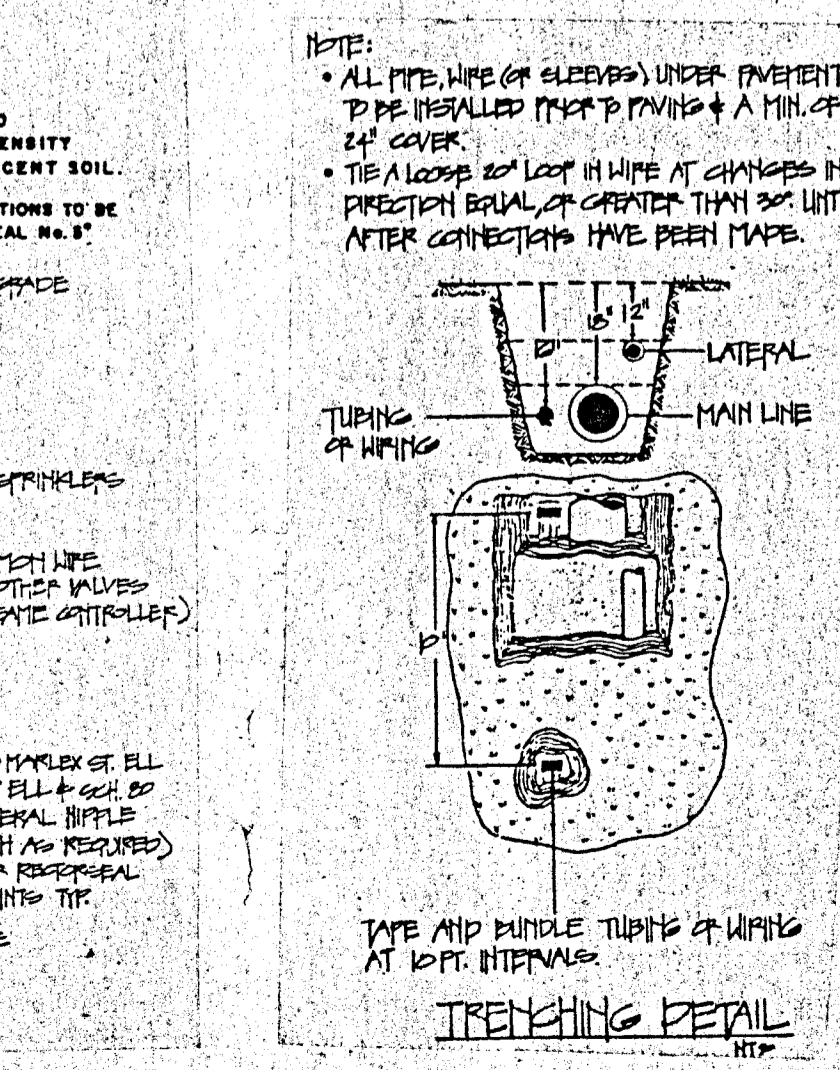 O
ENSITY
CENT SOIL.
TIONS TO BE
EAL No. 5"
GRADE
SPRINKLERS
MON WIRE
OTHER VALVES
SAME CONTROLLER)
MARLEX ST. ELL
ELL & SCH. 80
ERAL NIPPLE
H AS REQUIRED)
R RECTORSEAL
INTS TYP.
E
NOTE:
• ALL PIPE, WIRE (OR SLEEVES) UNDER PAVEMENT
TO BE INSTALLED PRIOR TO PAVING & A MIN. OF
24" COVER.
• TIE A LOOSE 20" LOOP IN WIRE AT CHANGES IN
DIRECTION EQUAL, OR GREATER THAN 30°. UNT
AFTER CONNECTIONS HAVE BEEN MADE.
18" 12"
LATERAL
TUBING
OR WIRING
MAIN LINE
10'
TAPE AND BUNDLE TUBING OR WIRING
AT 10 FT. INTERVALS.
TRENCHING DETAIL
NTS